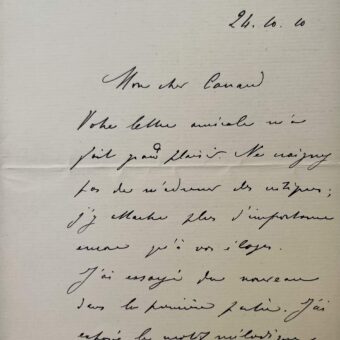 24.10.10
Mon cher Canard
Votre lettre amicale m'a
fait grand plaisir. Ne craignez
pas de m'adresser des critiques;
j'y attache plus d'importance
encore qu'à vos éloges.
J'ai essayé du nouveau
dans la première partie. J'ai
exposé les motifs mélodiques